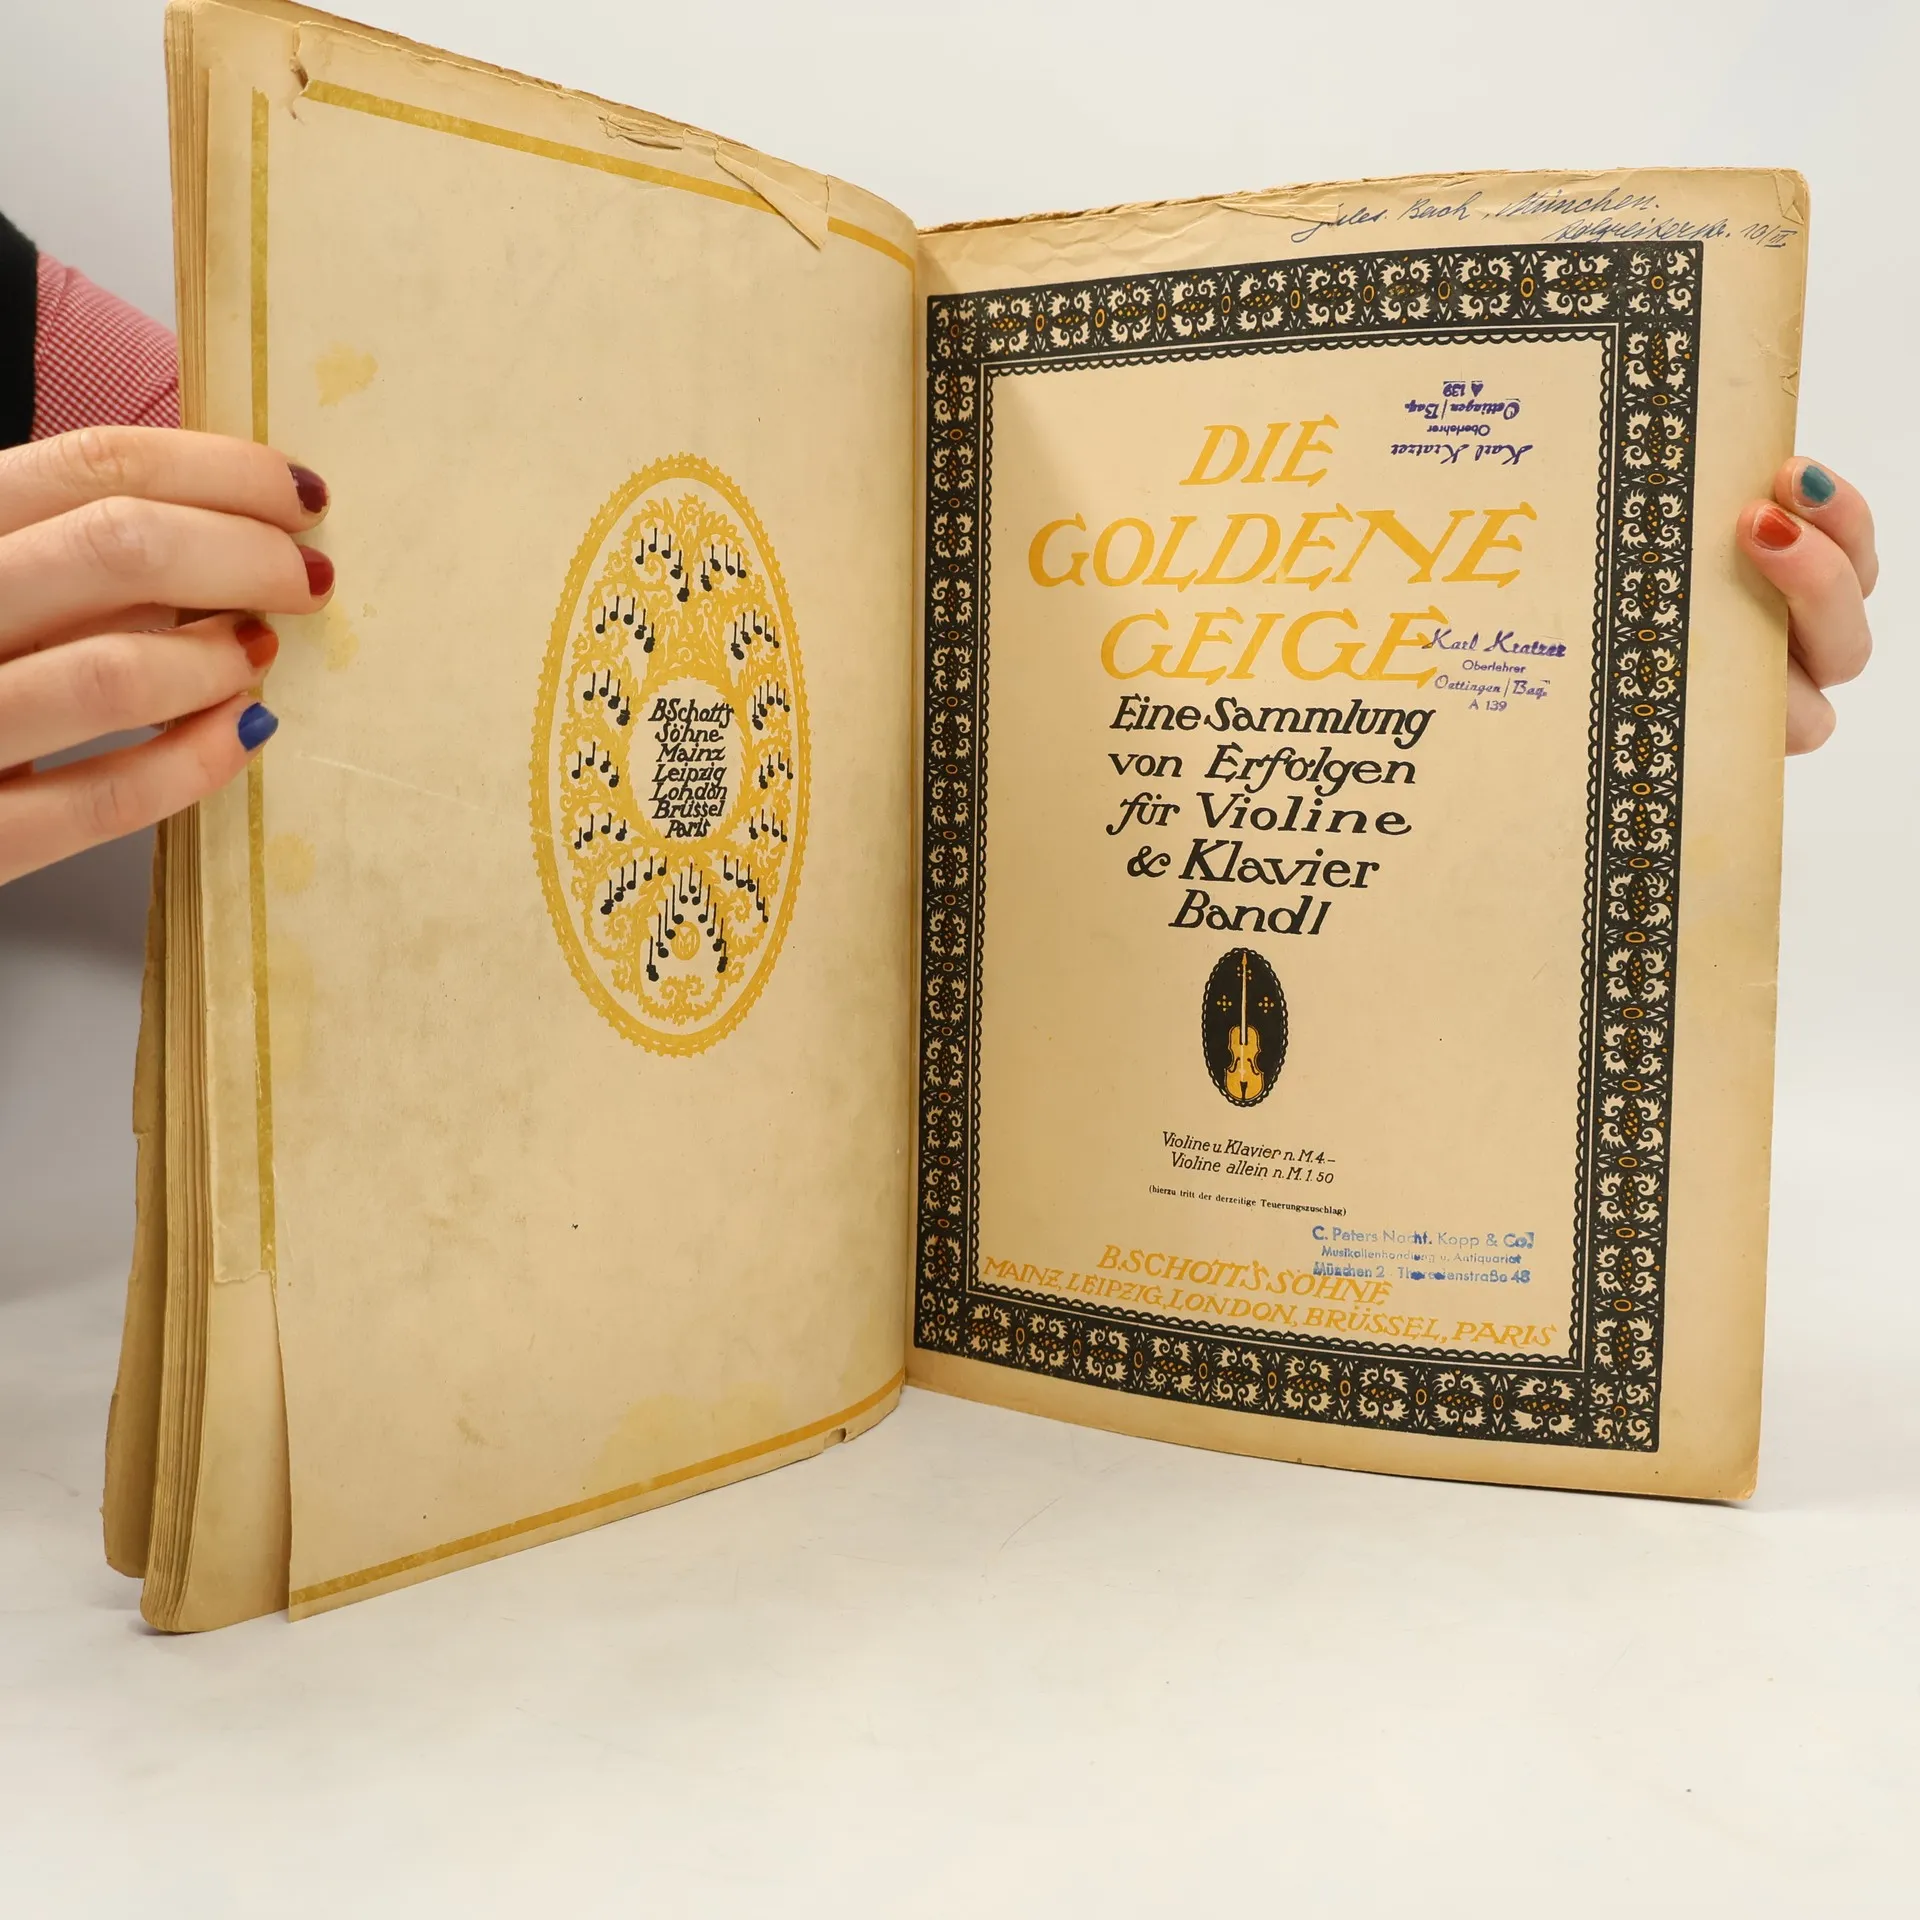 B. Schott's
Söhne
Mainz
Leipzig
London
Brüssel
Paris
Bach, München.
10/III.
Karl Kratzer
Oberlehrer
Oettingen/Bay.
A 139
DIE
GOLDENE
GEIGE
Karl Kratzer
Oberlehrer
Oettingen/Bay.
A 139
Eine Sammlung
von Erfolgen
für Violine
& Klavier
Band I
Violine u. Klavier n. M. 4.–
Violine allein n. M. 1.50
(hierzu tritt der derzeitige Teuerungszuschlag)
C. Peters Nachf. Kopp & Co.
Musikalienhandlung u. Antiquariat
München 2 · Theresienstraße 48
B. SCHOTT'S SÖHNE
MAINZ, LEIPZIG, LONDON, BRÜSSEL, PARIS